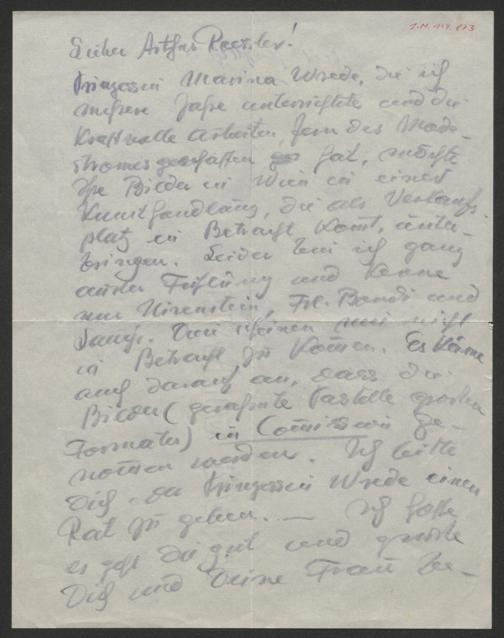 I.N. 149.873
Lieber Arthur Roessler!
Prinzessin Marina Wrede, die ich
mehrere Jahre unterrichtete und die
kraftvolle Arbeiten fern des Mode-
stromes geschaffen hat, möchte
ihre Bilder in Wien in einer
Kunsthandlung, die als Verkaufs-
platz in Betracht kommt, unter-
bringen. Leider bin ich ganz
ausser Fühlung und kenne
nur Nirenstein, Frl. Bondi und
Die scheinen mir nicht
in Betracht zu kommen. Es käme
auch darauf an, dass die
Bilder (gerahmte Pastelle grossen
Formates) in Comission ge-
nommen werden. Ich bitte
Dich, der Prinzessin Wrede einen
Rat zu geben. — Ich hoffe
es geht Dir gut und grüsse
Dich und Deine Frau